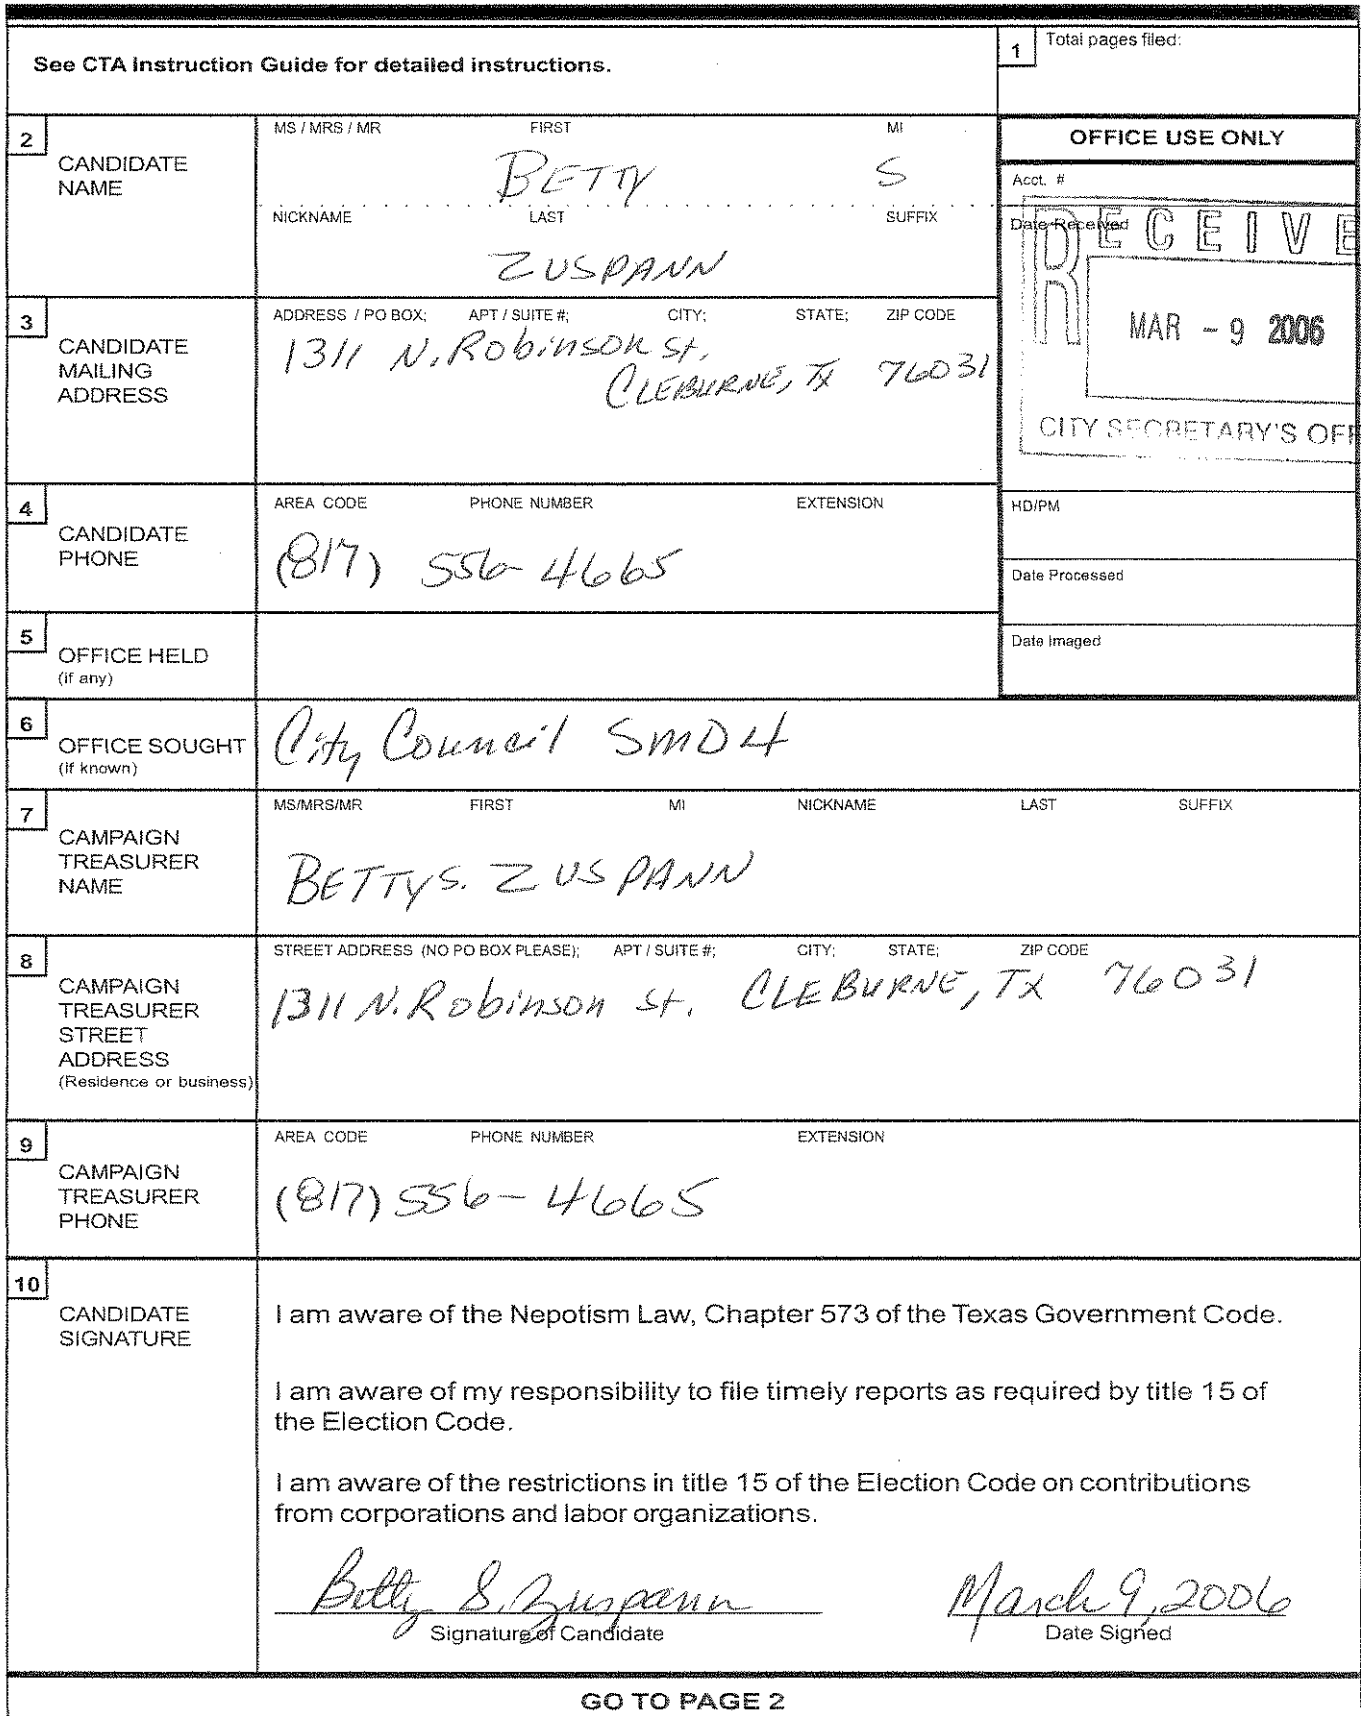 See CTA Instruction Guide for detailed instructions.
1 Total pages filed:
2 CANDIDATE NAME
MS / MRS / MR FIRST MI
BETTY S
NICKNAME LAST SUFFIX
ZUSPANN
OFFICE USE ONLY
Acct. #
Date Received
RECEIVE
MAR - 9 2006
CITY SECRETARY'S OFF
HD/PM
Date Processed
Date Imaged
3 CANDIDATE MAILING ADDRESS
ADDRESS / PO BOX; APT / SUITE #; CITY; STATE; ZIP CODE
1311 N. Robinson St.
CLEBURNE, TX 76031
4 CANDIDATE PHONE
AREA CODE PHONE NUMBER EXTENSION
(817) 556-4665
5 OFFICE HELD
(if any)
6 OFFICE SOUGHT
(if known)
City Council SMD4
7 CAMPAIGN TREASURER NAME
MS/MRS/MR FIRST MI NICKNAME LAST SUFFIX
BETTY S. ZUSPANN
8 CAMPAIGN TREASURER STREET ADDRESS
(Residence or business)
STREET ADDRESS (NO PO BOX PLEASE); APT / SUITE #; CITY; STATE; ZIP CODE
1311 N. Robinson St. CLEBURNE, TX 76031
9 CAMPAIGN TREASURER PHONE
AREA CODE PHONE NUMBER EXTENSION
(817) 556-4665
10 CANDIDATE SIGNATURE
I am aware of the Nepotism Law, Chapter 573 of the Texas Government Code.
I am aware of my responsibility to file timely reports as required by title 15 of
the Election Code.
I am aware of the restrictions in title 15 of the Election Code on contributions
from corporations and labor organizations.
Betty S. Zuspann March 9, 2006
Signature of Candidate Date Signed
GO TO PAGE 2